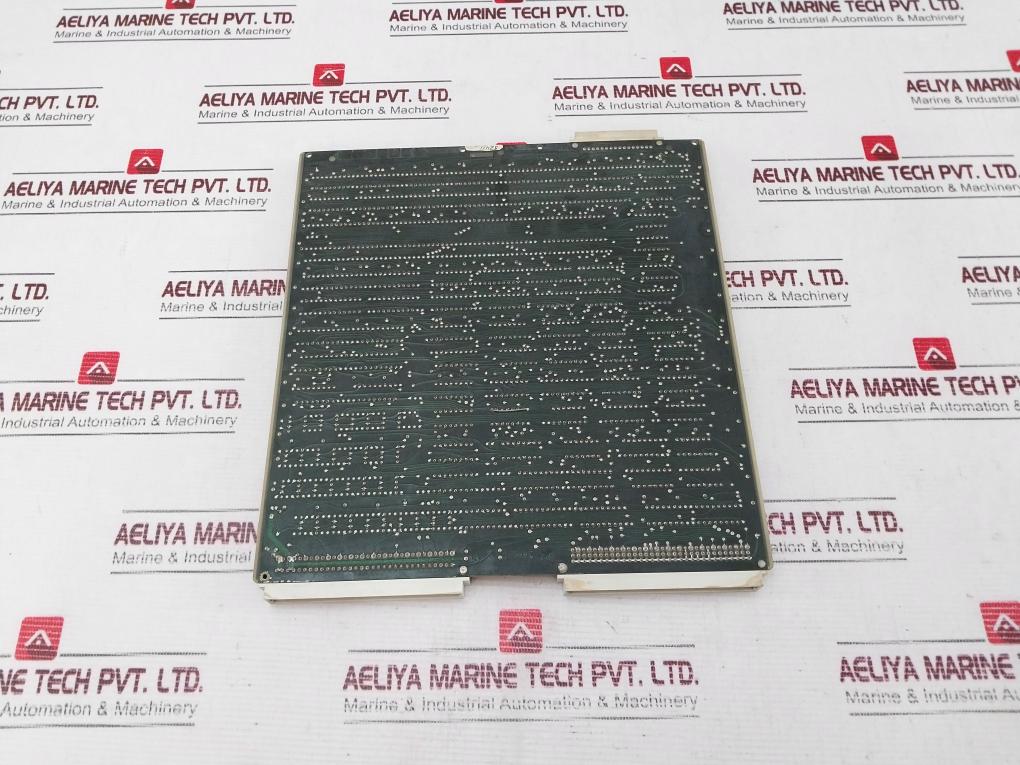 AELIYA MARINE TECH PVT. LTD.
Marine & Industrial Automation & Machinery
AELIYA MARINE TECH PVT. LTD.
Marine & Industrial Automation & Machinery
AELIYA MARINE TECH PVT. LTD.
Marine & Industrial Automation & Machinery
TECH PVT. LTD.
Automation & Machinery
AELIYA MARINE TECH PVT. LTD.
Marine & Industrial Automation & Machinery
AELIYA MARINE TECH PVT. LTD.
Marine & Industrial Automation & Machinery
AELIYA MARINE
Marine & Industrial
AELIYA MARINE TECH PVT. LTD.
Marine & Industrial Automation & Machinery
AELIYA MARINE TECH PVT. LTD.
Marine & Industrial Automation & Machinery
LTD.
Machinery
AELIYA MARIN
Marine & Industrial
PVT. LTD.
& Machinery
AELIYA
Marine &
MARINE TECH PVT. LTD.
Industrial Automation & Machinery
AELIYA MARINE TECH
Marine & Industrial Automation
AELIYA MARINE
Marine & Industrial
TECH PVT. LTD.
& Machinery
TECH PVT. LTD.
Automation & Machinery
AELIYA MARINE TECH PVT. LTD.
Marine & Industrial Automation & Machinery
AELIYA MARINE
Marine & Industrial